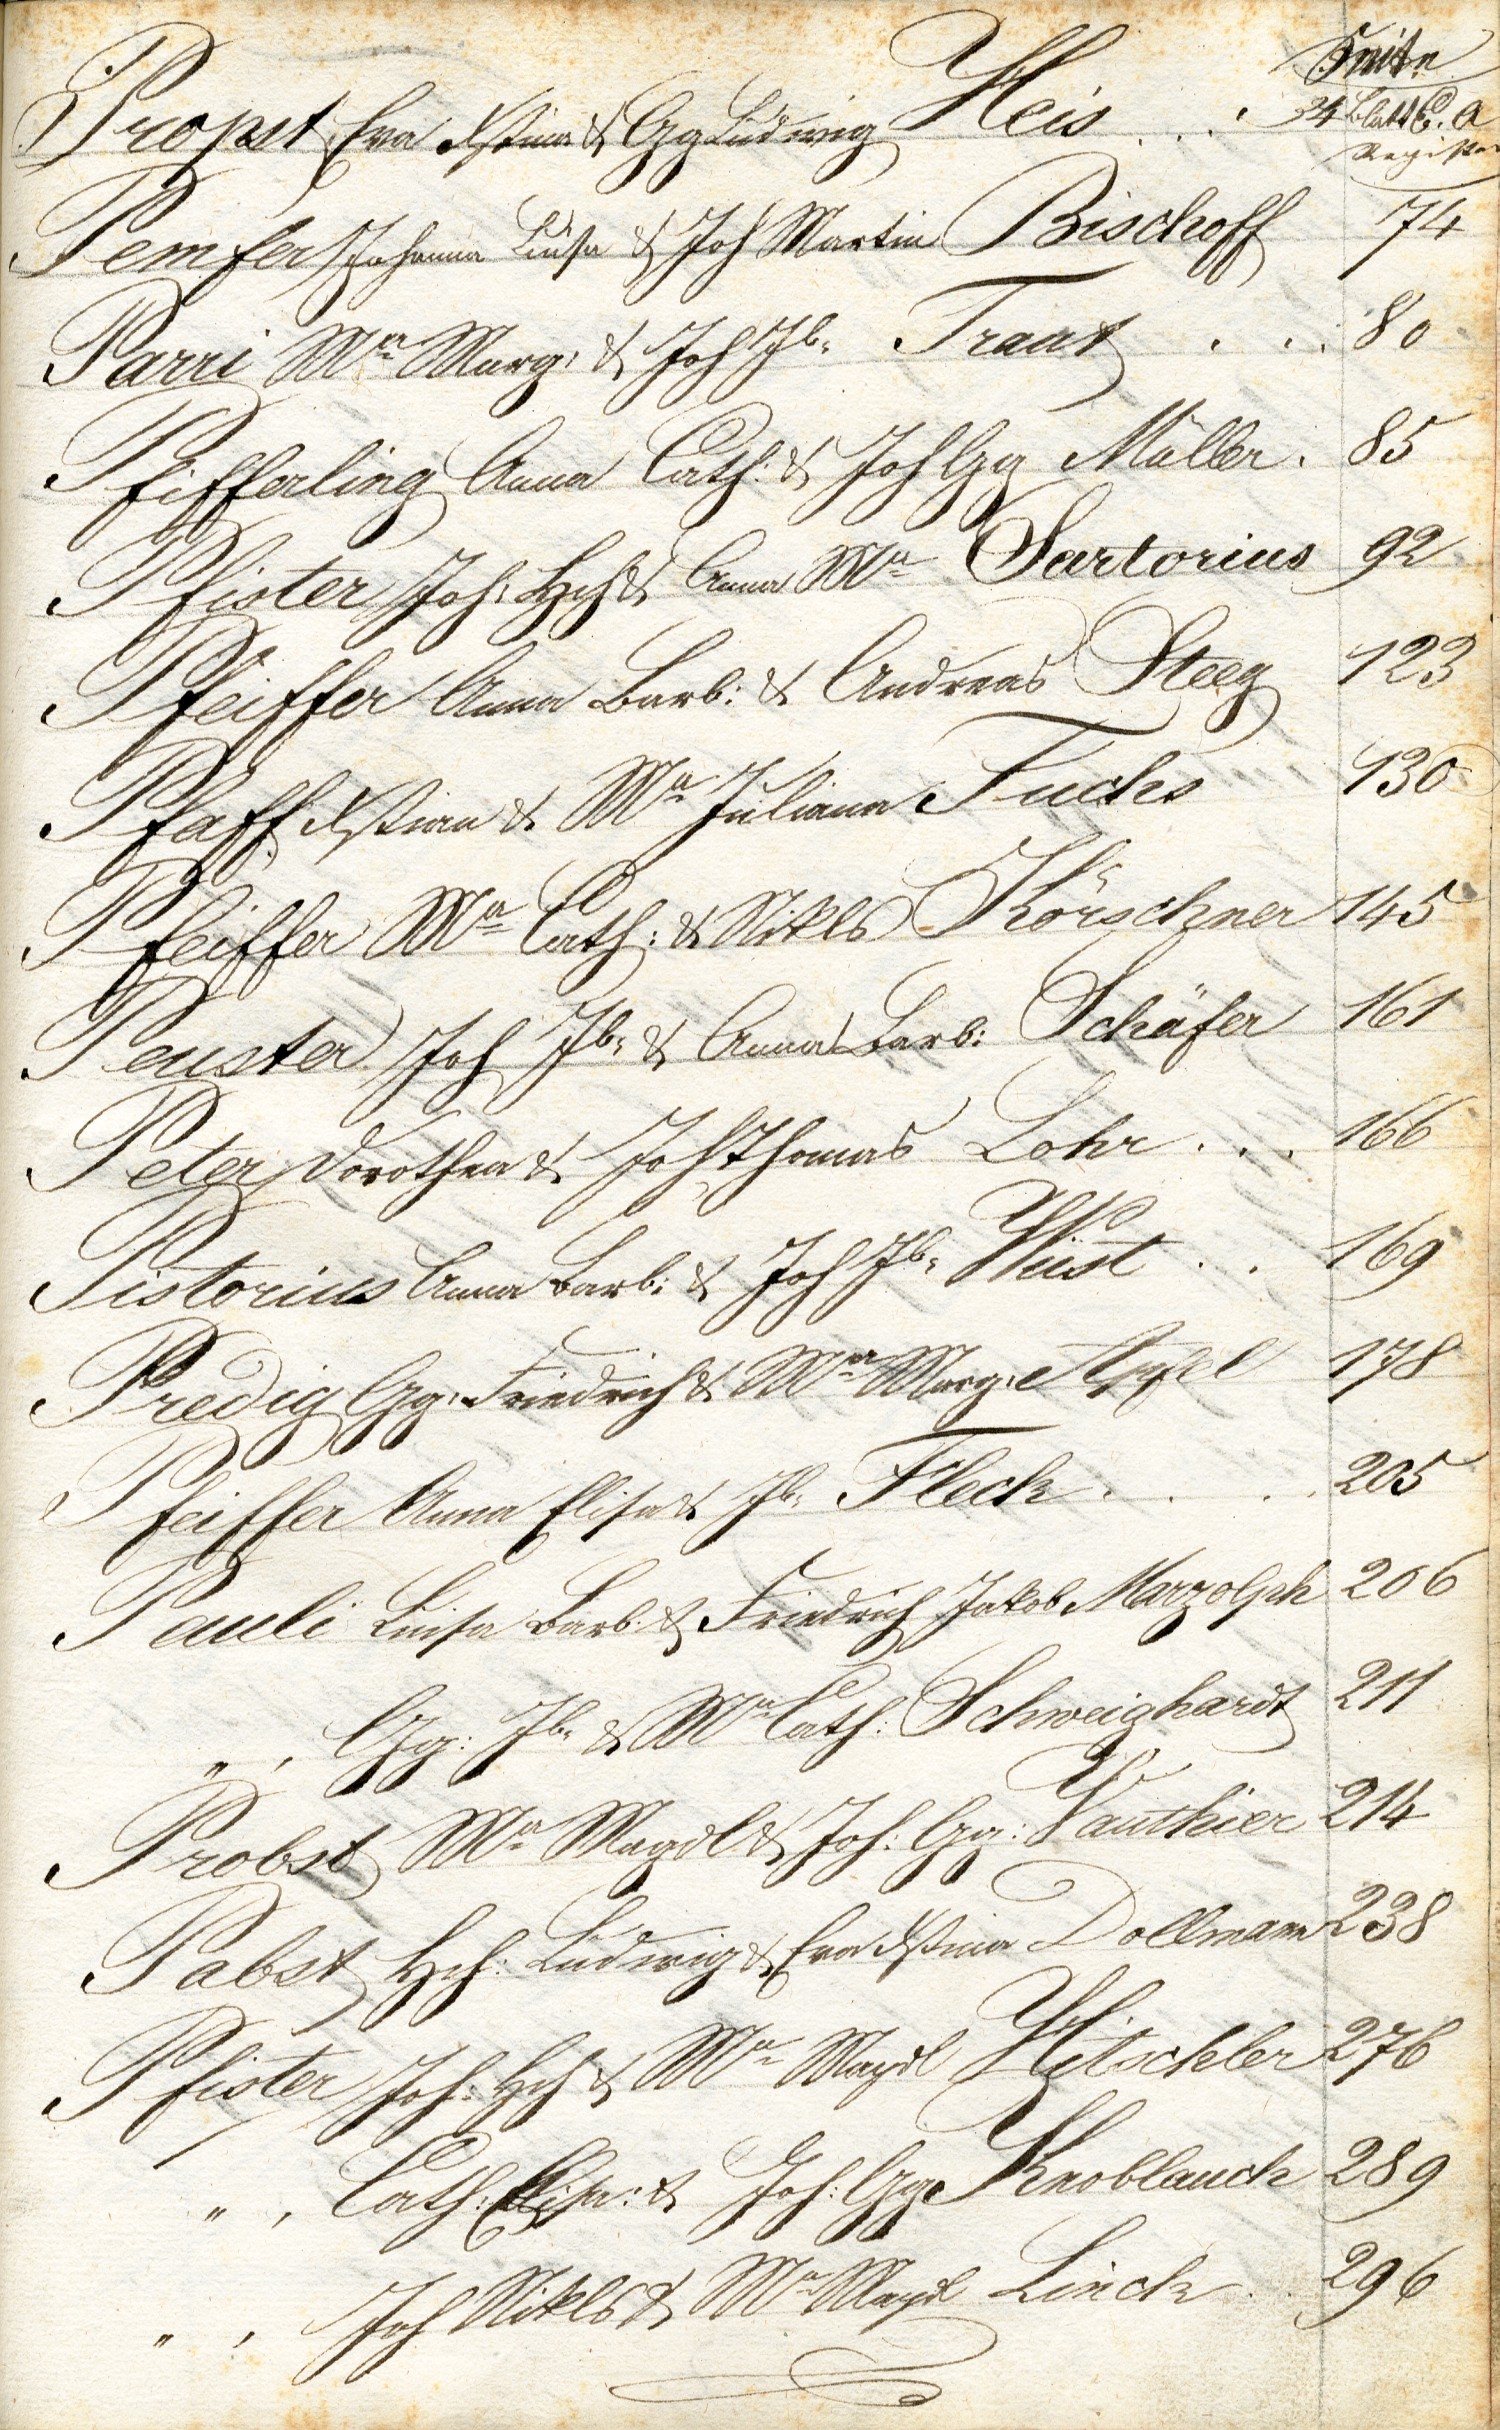 Seite
Propst Eva Xstina & Gg Ludwig Heis . . . 34 Blatt C. a
Register
Pemfer Johanna Luisa & Joh Martin Bischoff 74
Parri Ma Marg: & Joh Jb: Traut . . . 80
Pfifferling Anna Cath: & Joh Gg Müller . 85
Pfister Joh: Hch & Anna Ma Sartorius 92
Pfeiffer Anna Barb: & Andreas Steeg 123
Pfaff Xstian & Ma Juliana Fuchs 130
Pfeiffer Ma Cath: & Nikls Körschner 145
Peuster Joh Jb: & Anna Barb: Schäfer 161
Peter Dorothea & Joh Thomas Lohr . . . 166
Pistorius Anna Barb: & Joh Jb: Wüst . . 169
Predig Gg: Friedrich & Ma Marg: Apfel 178
Pfeiffer Anna Elisa & Jb: Fleck . . . . 205
Pauli Luisa Barb: & Friedrich Jakob Marzolph 206
" , Gg: Jb: & Ma Cath: Schweighardt 211
Probst Ma Magdl & Joh: Gg: Vauthier 214
Pabst Hch: Ludwig & Eva Xstina Dollmann 238
Pfister Joh: Hch & Ma Magdl Hitschler 276
" , Cath: Elisa: & Joh: Gg: Knoblauch 289
" , Joh Nikls & Ma Magdl Linck . . 296